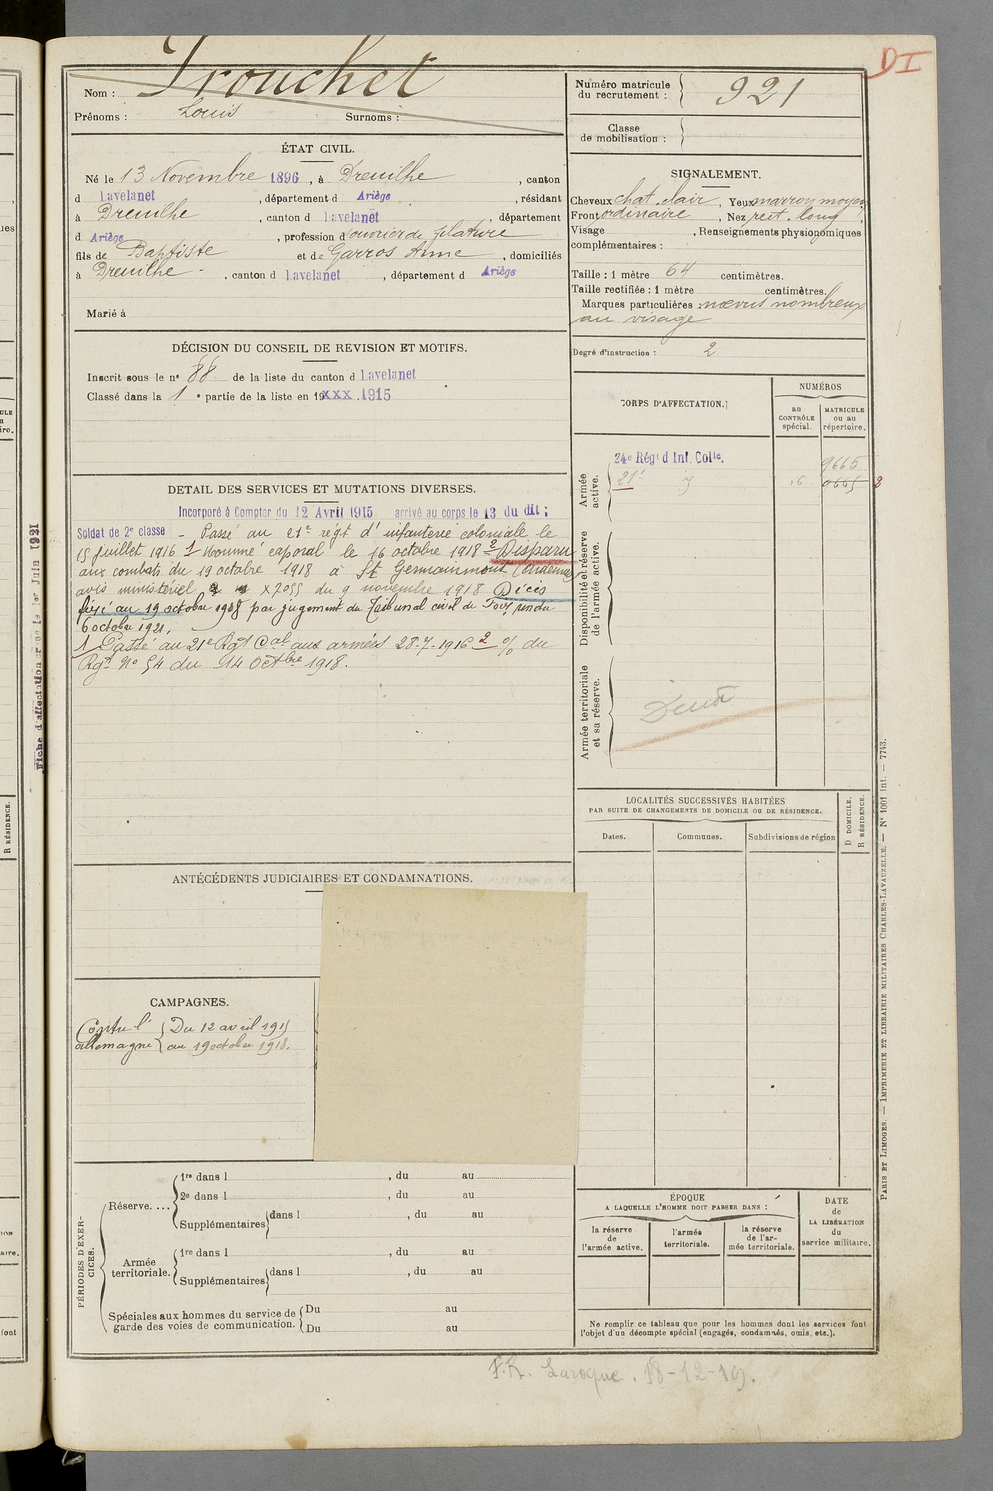 DI
Nom : Trouchet
Prénoms : Louis Surnoms :
ÉTAT CIVIL.
Né le 13 Novembre 1896, à Dreuilhe, canton
d Lavelanet, département d Ariège, résidant
à Dreuilhe, canton d Lavelanet, département
d Ariège, profession d ouvrier de filature
fils de Baptiste et de Garros Anne, domiciliés
à Dreuilhe, canton d Lavelanet, département d Ariège
Marié à
DÉCISION DU CONSEIL DE REVISION ET MOTIFS.
Inscrit sous le n° 88 de la liste du canton d Lavelanet
Classé dans la 1e partie de la liste en 19xxx.1915
DETAIL DES SERVICES ET MUTATIONS DIVERSES.
Incorporé à Compter du 12 Avril 1915 arrivé au corps le 13 du dit ;
Soldat de 2e classe - Passé au 21e régt d'infanterie coloniale le
15 juillet 1916 1 Nommé caporal le 16 octobre 1918 2 Disparu
aux combats du 19 octobre 1918 à St Germainmont (Ardennes)
avis ministériel X 7055 du 9 novembre 1918 Décès
fixé au 19 octobre 1918 par jugement du Tribunal civil de Foix, rendu
6 octobre 1921.
1 Passé au 21e Rgt Cal aux armées 28-7-1916. 2 o/ du
Rgt N° 54 du 14 Octbre 1918.
ANTÉCÉDENTS JUDICIAIRES ET CONDAMNATIONS.
CAMPAGNES.
Contre l' { Du 12 avril 1915
allemagne { au 19 octobre 1918.
PÉRIODES D'EXERCICES.
Réserve....
1re dans l , du au
2e dans l , du au
Supplémentaires dans l , du au
Armée territoriale.
1re dans l , du au
Supplémentaires dans l , du au
Spéciales aux hommes du service de garde des voies de communication.
Du au
Du au
Numéro matricule
du recrutement : 921
Classe
de mobilisation :
SIGNALEMENT.
Cheveux chat. clair, Yeux marron moyen
Front ordinaire, Nez rect. long,
Visage , Renseignements physionomiques
complémentaires :
Taille : 1 mètre 64 centimètres.
Taille rectifiée : 1 mètre centimètres.
Marques particulières : nœvus nombreux
au visage
Degré d'instruction : 2
CORPS D'AFFECTATION.
NUMÉROS
au
CONTRÔLE
spécial.
MATRICULE
ou au
répertoire.
Armée
active.
24e Régt d Inf. Colle. 9665
21e
Disponibilité et réserve
de l'armée active.
Armée territoriale
et sa réserve.
LOCALITÉS SUCCESSIVES HABITÉES
PAR SUITE DE CHANGEMENTS DE DOMICILE OU DE RÉSIDENCE.
Dates. Communes. Subdivisions de région
D DOMICILE.
R RÉSIDENCE.
ÉPOQUE
A LAQUELLE L'HOMME DOIT PASSER DANS :
la réserve
de
l'armée active.
l'armée
territoriale.
la réserve
de l'ar-
mée territoriale.
DATE
de
LA LIBÉRATION
du
service militaire.
Ne remplir ce tableau que pour les hommes dont les services font
l'objet d'un décompte spécial (engagés, condamnés, omis, etc.).
F.R. Laroque. 18-12-19.
PARIS ET LIMOGES. — IMPRIMERIE ET LIBRAIRIE MILITAIRES CHARLES-LAVAUZELLE. — N° 1001 Int. — 7743.
R RÉSIDENCE.